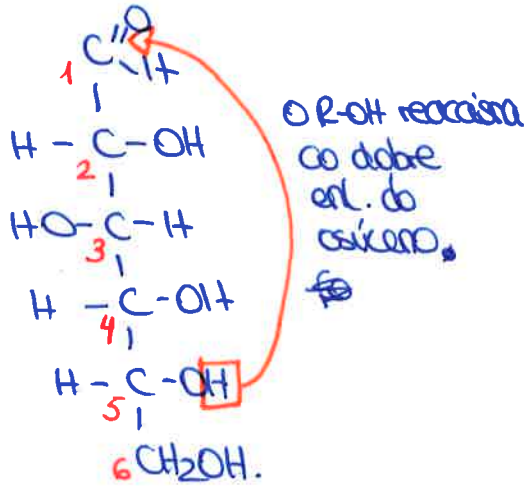 C=O
1
H
H - C - OH
2
HO - C - H
3
H - C - OH
4
H - C - OH
5
6 CH2OH.
O R-OH reacciona
co dobre
enl. do
osíxeno.